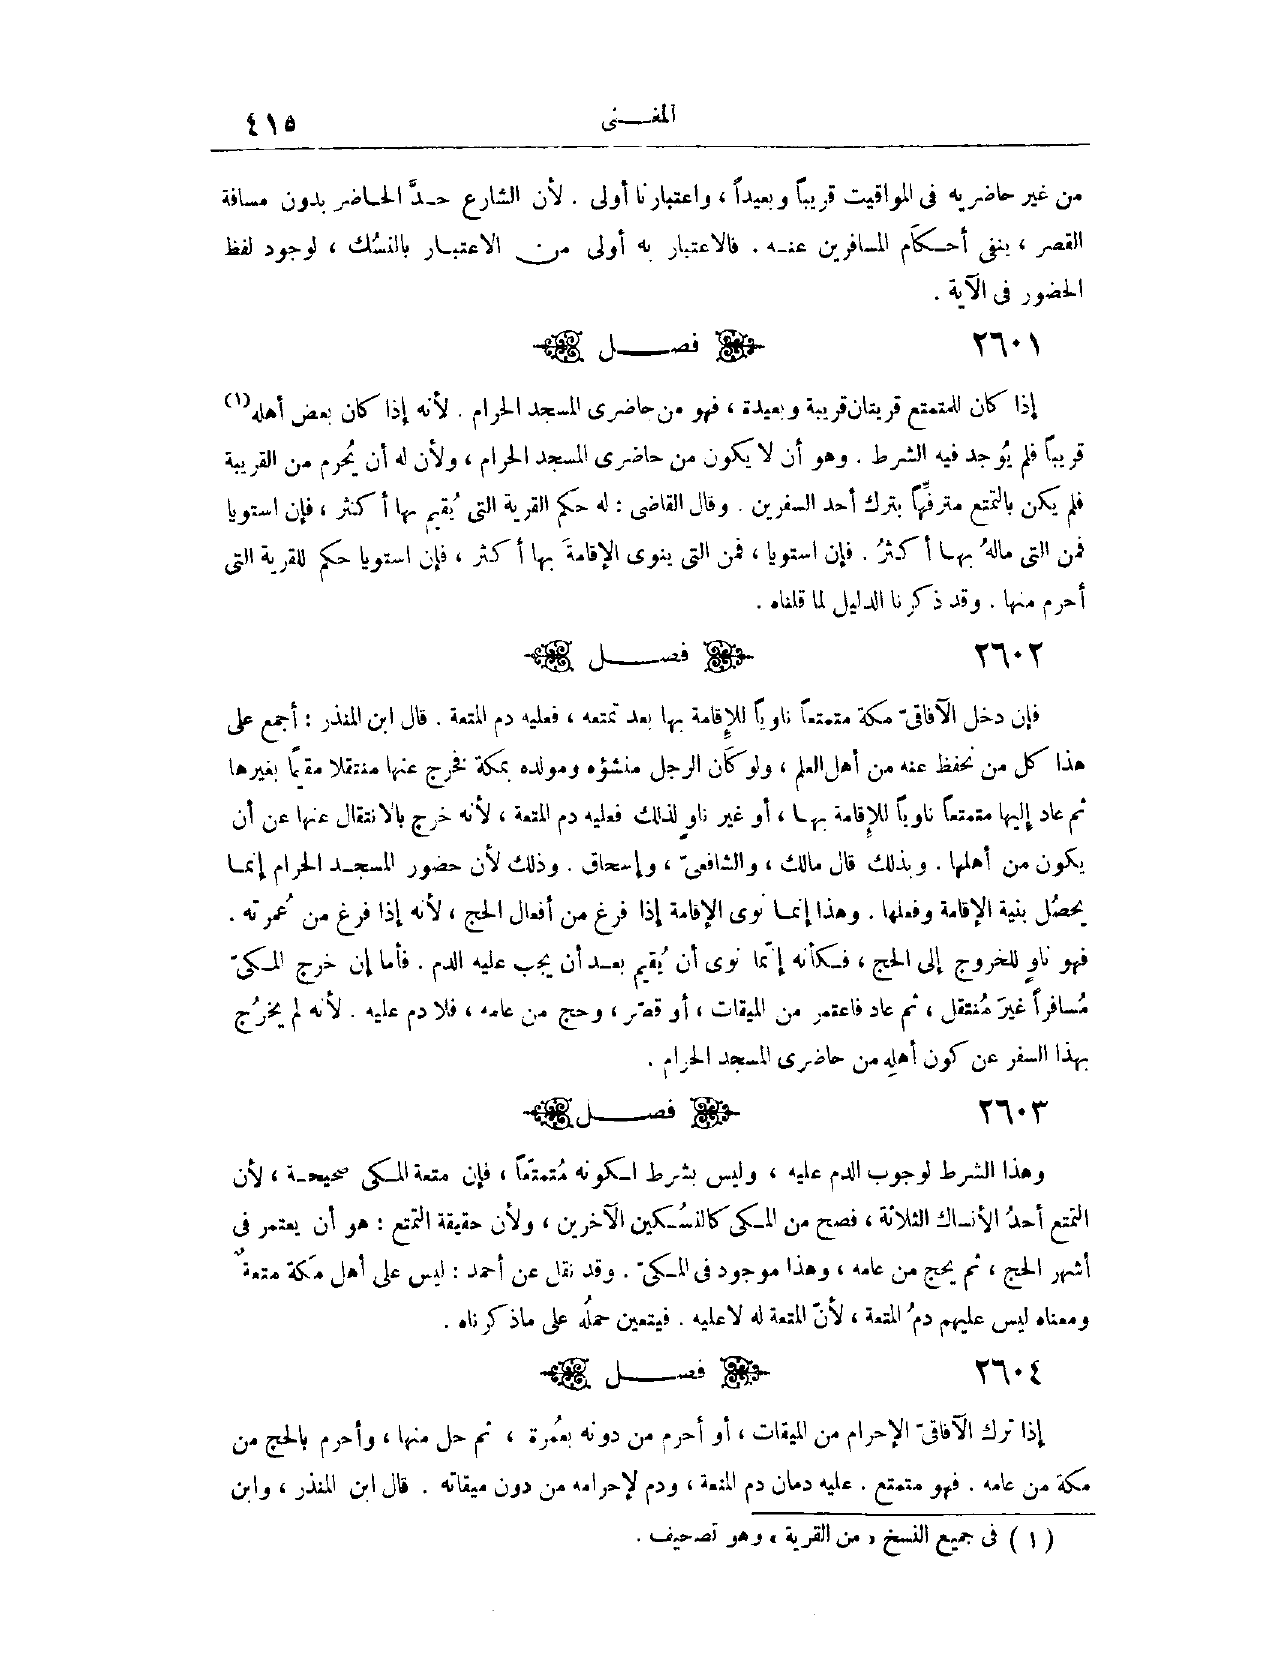 المغنى
٤١٥
من غير حاضريه فى المواقيت قريباً وبعيداً ، واعتبارنا أولى . لأن الشارع حدَّ الحاضر بدون مسافة
القصر ، بنفى أحكام المسافرين عنه . فالاعتبار به أولى من الاعتبار بالنسُك ، لوجود لفظ
الحضور فى الآية .
٢٦٠١
فصل
إذا كان للمتمتع قريتان قريبة وبعيدة ، فهو من حاضرى المسجد الحرام . لأنه إذا كان بعض أهله(١)
قريباً فلم يُوجد فيه الشرط . وهو أن لا يكون من حاضرى المسجد الحرام ، ولأن له أن يُحرم من القريبة
فلم يكن بالتمتع مترفِّهاً بترك أحد السفرين . وقال القاضى : له حكم القرية التى يُقيم بها أكثر ، فإن استويا
فمن التى مالهُ بها أكثرُ . فإن استويا ، فمن التى ينوى الإقامةَ بها أكثر ، فإن استويا حكم للقرية التى
أحرم منها . وقد ذكرنا الدليل لما قلناه .
٢٦٠٢
فصل
فإن دخل الآفاقىّ مكة متمتعاً ناوياً للإقامة بها بعد تمتعه ، فعليه دم المتعة . قال ابن المنذر : أجمع على
هذا كل من نحفظ عنه من أهل العلم ، ولو كان الرجل منشؤه ومولده بمكة فخرج عنها منتقلا مقيماً بغيرها
ثم عاد إليها متمتعاً ناوياً للإقامة بها ، أو غير ناوٍ لذلك فعليه دم المتعة ، لأنه خرج بالانتقال عنها عن أن
يكون من أهلها . وبذلك قال مالك ، والشافعىّ ، وإسحاق . وذلك لأن حضور المسجد الحرام إنما
يحصُل بنية الإقامة وفعلها . وهذا إنما نوى الإقامة إذا فرغ من أفعال الحج ، لأنه إذا فرغ من عُمرته .
فهو ناوٍ للخروج إلى الحج ، فكأنه إنّما نوى أن يُقيم بعد أن يجب عليه الدم . فأما إن خرج المكىّ
مُسافراً غيرَ مُنتقل ، ثم عاد فاعتمر من الميقات ، أو قصّر ، وحج من عامه ، فلا دم عليه . لأنه لم يخرُج
بهذا السفر عن كون أهلِه من حاضرى المسجد الحرام .
٢٦٠٣
فصل
وهذا الشرط لوجوب الدم عليه ، وليس بشرط لكونه مُتمتعاً ، فإن متعة المكى صحيحة ، لأن
التمتع أحدُ الأنساك الثلاثة ، فصح من المكى كالنسُكين الآخرين ، ولأن حقيقة التمتع : هو أن يعتمر فى
أشهر الحج ، ثم يحج من عامه ، وهذا موجود فى المكىّ . وقد نقل عن أحمد : ليس على أهل مكة متعةٌ
ومعناه ليس عليهم دمُ المتعة ، لأنّ المتعة له لا عليه . فيتعين حملُه على ما ذكرناه .
٢٦٠٤
فصل
إذا ترك الآفاقىّ الإحرام من الميقات ، أو أحرم من دونه بعُمرة ، ثم حل منها ، وأحرم بالحج من
مكة من عامه . فهو متمتع . عليه دمان دم المتعة ، ودم لإحرامه من دون ميقاته . قال ابن المنذر ، وابن
(١) فى جميع النسخ « من القرية » وهو تصحيف .